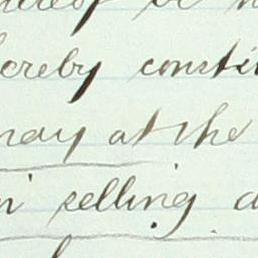 hereof be
hereby consti
may at the
in selling a